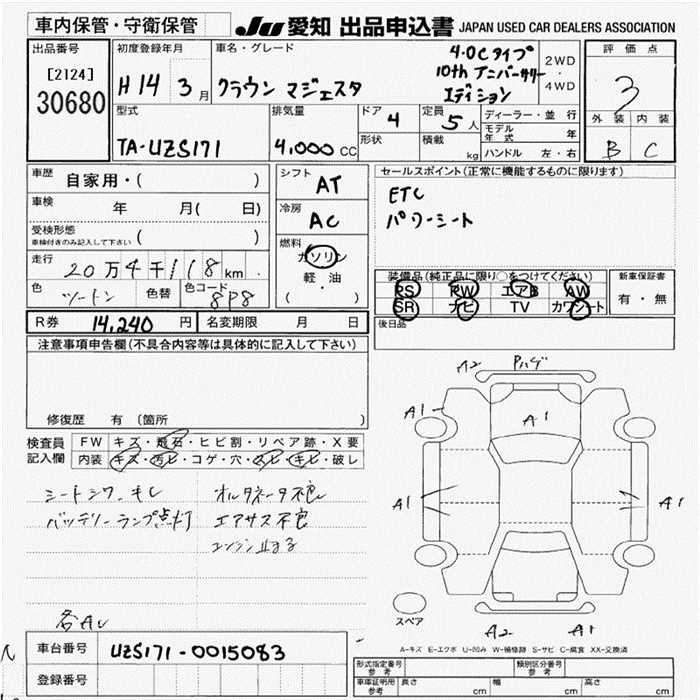 車内保管・守衛保管
JU 愛知 出品申込書 JAPAN USED CAR DEALERS ASSOCIATION
出品番号
[2124]
30680
初度登録年月
H14 3月
車名・グレード
クラウン マジェスタ
4.0Cタイプ
10th アニバーサリー
エディション
2WD
・
4WD
評価点
3
外装 内装
B C
型式
TA-UZS171
排気量
4,000 CC
ドア
4
形状
定員
5人
積載
kg
ディーラー・並行
モデル年式 年
ハンドル 左・右
車歴 自家用・( )
車検 年 月( 日)
受検形態
車検付きのみ記入して下さい ( )
走行 20万4千118km
色 ツートン 色替 色コード 8P8
シフト
AT
冷房
AC
燃料
ガソリン
軽・油
( ・ )
セールスポイント(正常に機能するものに限ります)
ETC
パワーシート
装備品(純正品に限り○をつけてください)
PS PW エアB AW
SR ナビ TV カワシート
新車保証書
有・無
後日品
R券 14,240 円 名変期限 月 日
注意事項申告欄(不具合内容等は具体的に記入して下さい)
修復歴 有(箇所 )
検査員
記入欄
FW キズ・飛石・ヒビ割・リペア跡・X要
内装 キズ・汚レ・コゲ・穴・スレ・キレ・破レ
シートシワ、キレ オルタネータ不良
バッテリーランプ点灯 エアサス不良
エンジン止まる
各AU
A2 Pハゲ
A1
A1
A1
A1
A2 A1
スペア
A-キズ E-エクボ U-凹み W-補修跡 S-サビ C-腐食 XX-交換済
車台番号 UZS171-0015083
登録番号
形式指定番号
参考
類別区分番号
参考
車庫証明用
参考
長さ cm 幅 cm 高さ cm